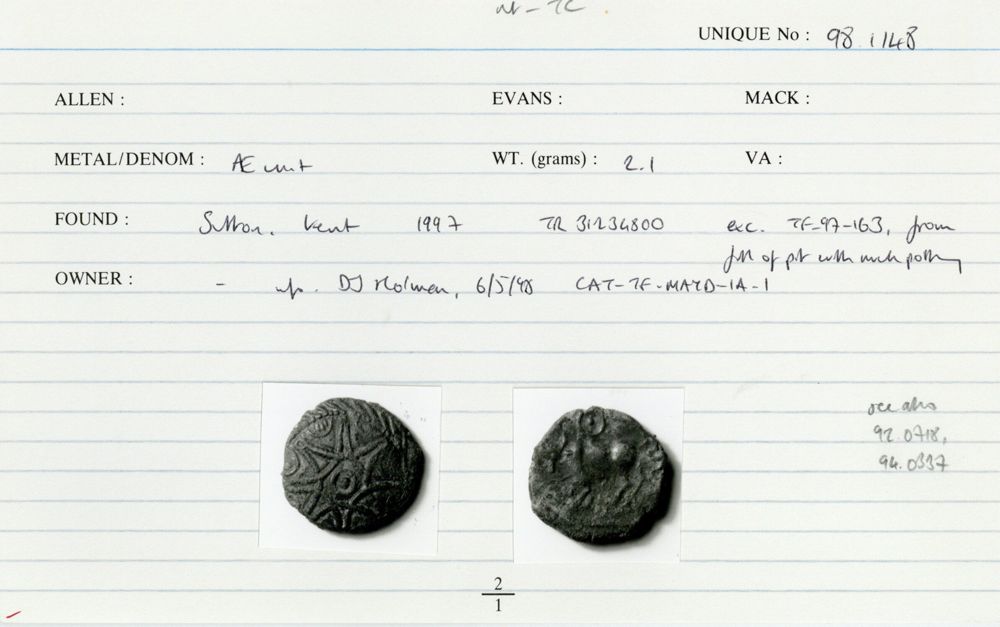 UNIQUE No : 98.1148
ALLEN : EVANS : MACK :
METAL/DENOM : Æ unit WT. (grams) : 2.1 VA :
FOUND : Sutton, Kent 1997 TR 31234800 exc. TF-97-163, from
fill of pit with much pottery
OWNER : - info. DJ Holman, 6/5/98 CAT-TF-MAYD-IA-1
see also
92.0718,
94.0337
2
1